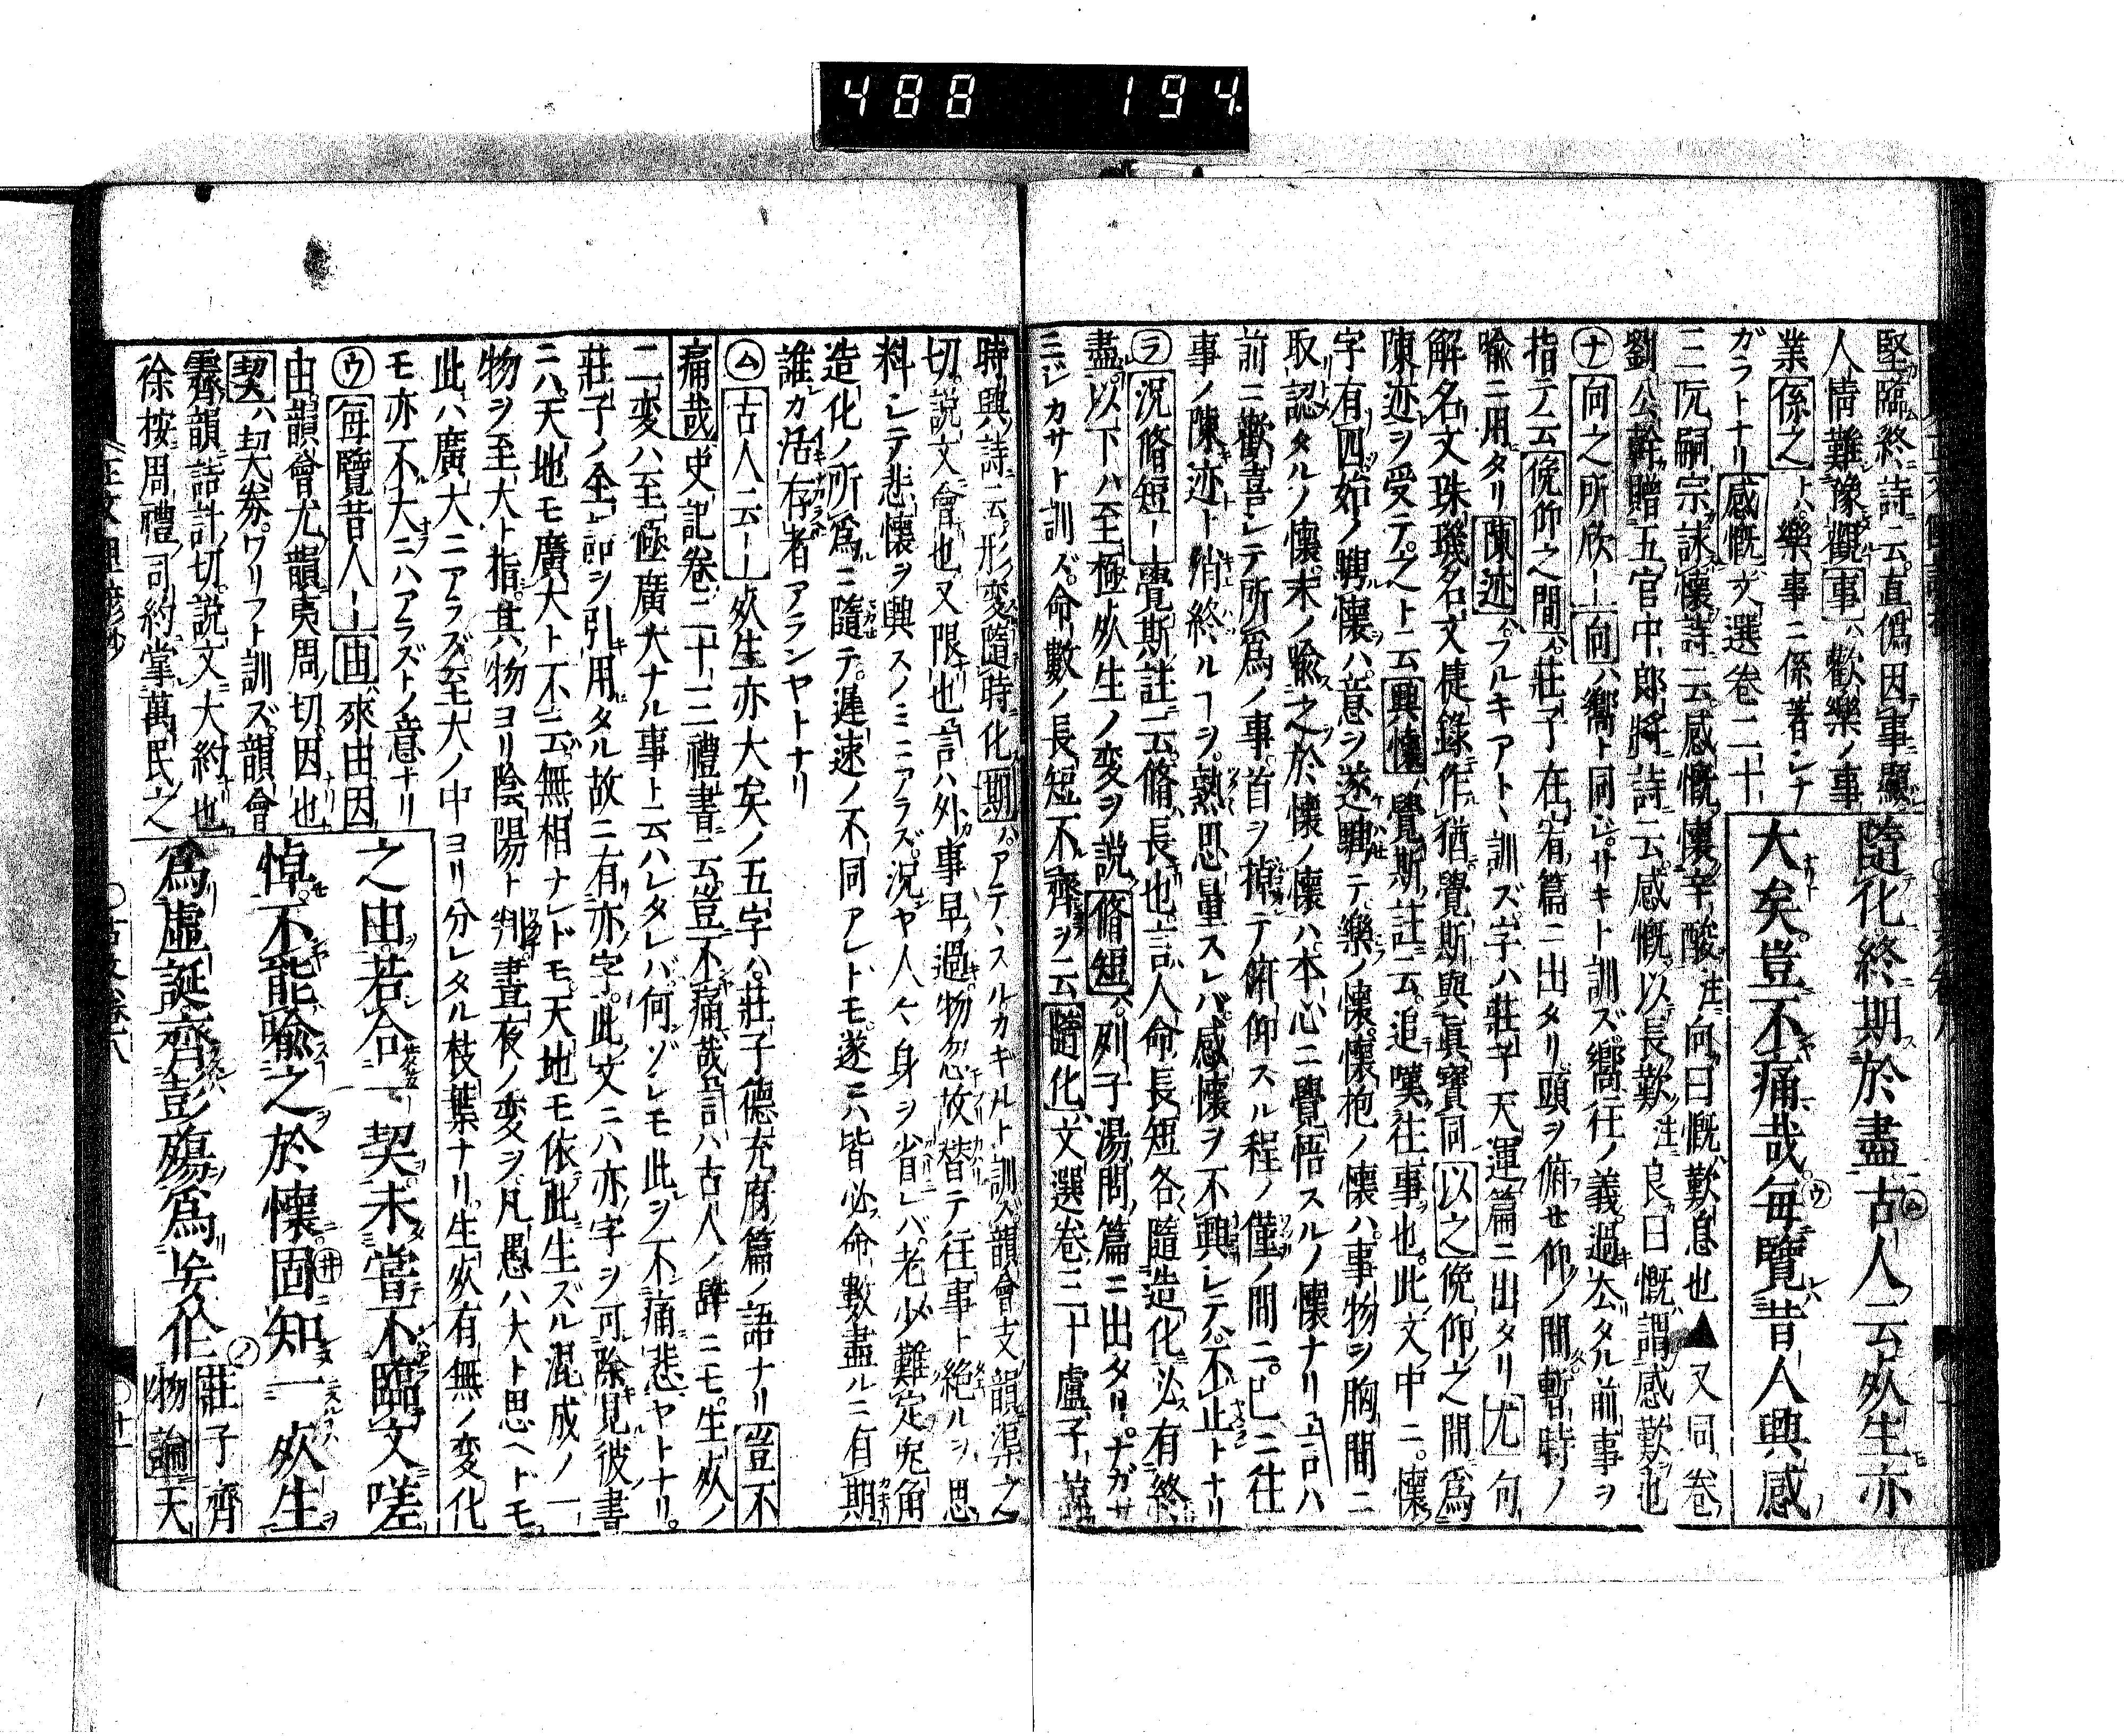 488 194.
堅臨終詩ニ云直偽因事顯
人情難豫觀事ハ歡樂ノ事
業係之トハ樂事ニ係著シナ
ガラトナリ感慨文選卷二十
隨化終期於盡古人云死生亦
大矣豈不痛哉毎覽昔人興感
三阮嗣宗詠懷詩ニ云感慨懷辛酸註向曰慨歎息也▲又同卷
劉公幹贈五官中郎將詩ニ云感慨以長歎註良曰慨謂感歎也
ナ向之所欣ーー向ハ嚮ト同シサキト訓ズ嚮往ノ義過去タル前事ヲ
指テ云俛仰之間ハ莊子在宥篇ニ出タリ頭ヲ俯セ仰ノ間暫時ノ
喩ニ用タリ陳迹ハフルキアトト訓ズ字ハ莊子天運篇ニ出タリ尤句
解名文珠璣名文捷錄作猶覺斯與眞寶同以之俛仰之間爲
陳迹ヲ受テ之ト云興懷ハ覺斯註云追嘆往事也此文中ニ懷
字有四始ノ騁懷ハ意ヲ遂騁テ樂ノ懷懷抱ノ懷ハ事物ヲ胸間ニ
取認タルノ懷末ノ喩之於懷ノ懷ハ本心ニ覺悟スルノ懷ナリ言ハ
前ニ歡喜シテ所爲ノ事首ヲ掉テ俯仰スル程ノ僅ノ間ニ已ニ往
事ノ陳迹ト消終ルヿヲ熟思量スレバ感懷ヲ不興シテハ不止トナリ
ラ況脩短ーー覺斯註云脩長也言人命長短各隨造化必有終
盡以下ハ至極死生ノ変ヲ説脩短ハ列子湯問篇ニ出タリナガサ
ミジカサト訓ズ命數ノ長短不齊ヲ云隨化文選卷三十盧子諒
時興詩ニ云形変隨時化期ハアテトスルカキルト訓ス韻會支韻渠之
切説文會也又限也言ハ外事早過物忽故替テ往事ト絶ルヲ思
料シテ悲懷ヲ興スノミニアラズ況ヤ人々身ヲ省レバ老少難定兎角
造化ノ所爲ニ隨テ遲速ノ不同アレドモ遂ニハ皆必命數盡ルニ有期
誰カ活存者アランヤトナリ
ム古人云ーー死生亦大矣ノ五字ハ莊子德充府篇ノ語ナリ豈不
痛哉史記卷二十三禮書ニ云豈不痛哉言ハ古人ノ辭ニモ生死ノ
二変ハ至極廣大ナル事ト云ハレタレバ何ゾレモ此ヲ不痛悲ヤトナリ
莊子ノ全句ヲ引用タル故ニ有亦字此文ニハ亦字ヲ可除見彼書
ニハ天地モ廣大ト不云無相ナレドモ天地モ依此生ズル混成ノ一
物ヲ至大ト指其物ヨリ陰陽ト判晝夜ノ変ヲ凡愚ハ大ト思ヘドモ
此ハ廣大ニアラズ至大ノ中ヨリ分レタル枝葉ナリ生死有無ノ変化
モ亦不大ニハアラズトノ意ナリ
ウ毎覽昔人ーー由ハ來由因
由韻會尤韻夷周切因也
契ハ契券ワリフト訓ズ韻會
霽韻詰計切説文大約也
徐按周禮司約掌萬民之
之由若合一契未嘗不臨文嗟
悼不能喩之於懷固知一死生
爲虛誕齊彭殤爲妄作
莊子齊
物論天